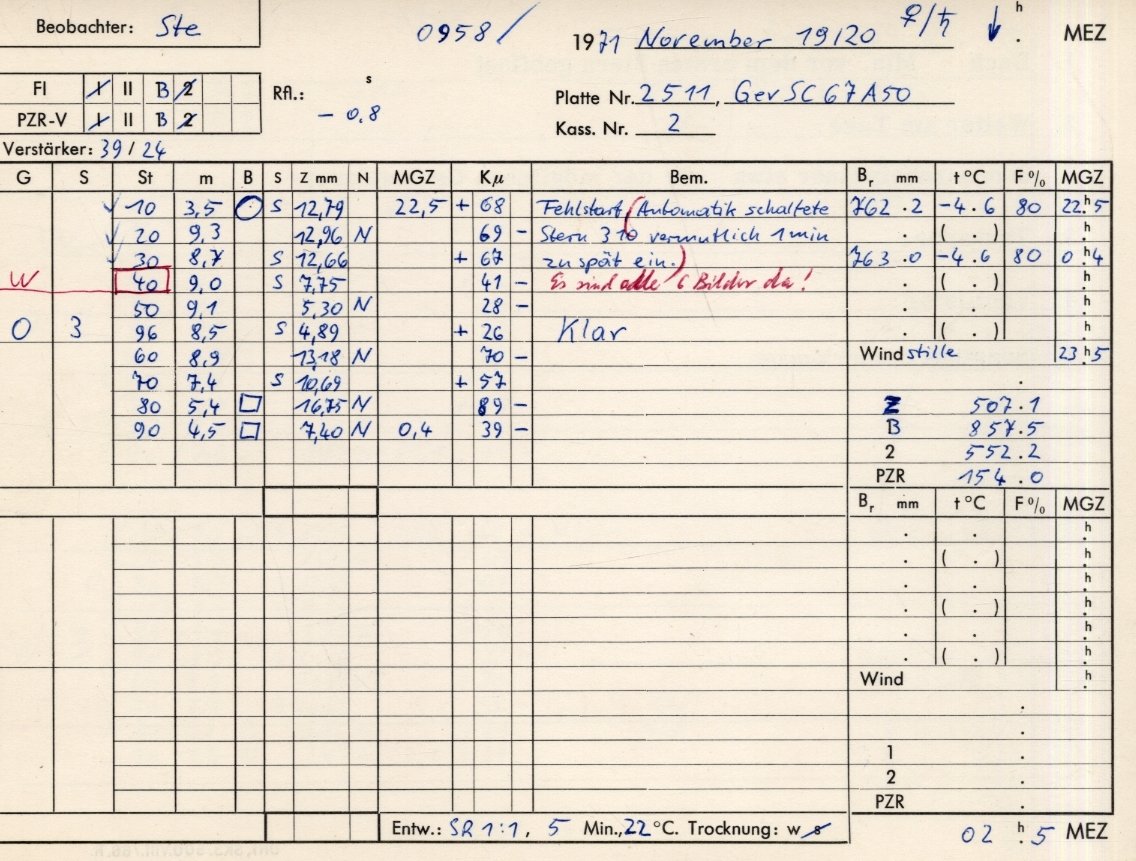 Beobachter: Ste
0958/
1971 November 19/20 ♀/♄ ↓ h . MEZ
FI I II B 2
PZR-V I II B 2
Rfl.: s
- 0,8
Platte Nr. 2511, GevSC67A50
Kass. Nr. 2
Verstärker: 39 / 24
G S St m B S Z mm N MGZ Kμ Bem. Br mm t °C F % MGZ
10 3,5 S 12,79 22,5 + 68 Fehlstart (Automatik schaltete 762.2 -4.6 80 22.h5
20 9,3 12,96 N 69 - Stern 310 vermutlich 1 min . ( . ) h
30 8,7 S 12,66 + 67 zu spät ein.) 763.0 -4.6 80 0.h4
W 40 9,0 S 7,75 41 - Es sind alle 6 Bilder da! . ( . ) h
50 9,1 5,30 N 28 - . . h
O 3 96 8,5 S 4,89 + 26 Klar . ( . ) h
60 8,9 13,18 N 70 - Wind stille 23 h5
70 7,4 S 10,69 + 57 .
80 5,4 □ 16,75 N 89 - Z 507.1
90 4,5 □ 7,40 N 0,4 39 - B 857.5
2 552.2
PZR 154.0
Br mm t °C F % MGZ
. . h
. ( . ) h
. . h
. ( . ) h
. . h
. ( . ) h
Wind h
.
.
1 .
2 .
PZR .
Entw.: SR 1:1, 5 Min., 22 °C. Trocknung: w s
02 h.5 MEZ